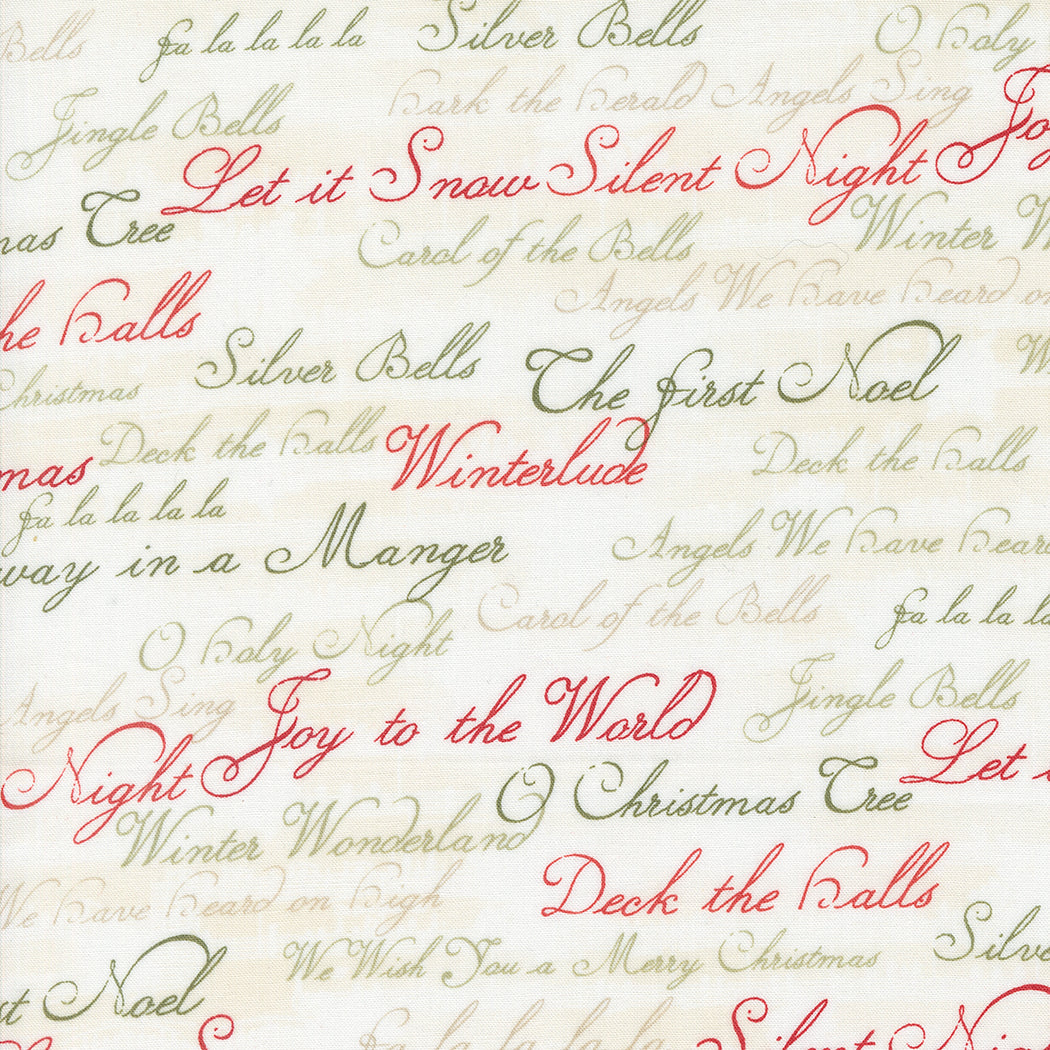 Bells fa la la la la Silver Bells O holy
hark the herald Angels Sing
Jingle Bells
Joy
Let it Snow Silent Night
mas Tree
Carol of the Bells
Winter W
Angels We have heard on
he halls
Silver Bells
The first Noel
Christmas
Deck the halls
Winterlude
Deck the halls
mas
fa la la la la
way in a Manger
Angels We have heard
Carol of the Bells
fa la la la la
O holy Night
Angels Sing
Joy to the World
Jingle Bells
Night
Let i
O Christmas Tree
Winter Wonderland
Deck the halls
We have heard on high
Silve
We Wish You a Merry Christmas
st Noel
fa la la la la
Silent Night